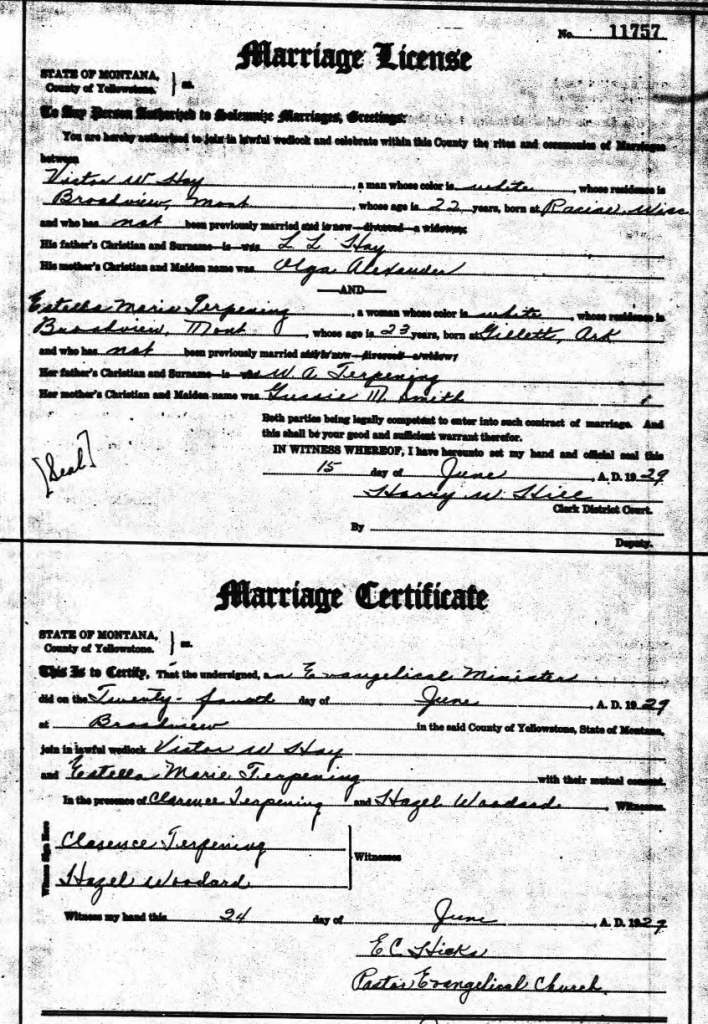 No. 11757
Marriage License
STATE OF MONTANA,
County of Yellowstone. } ss.
To Any Person Authorized to Solemnize Marriages, Greetings:
You are hereby authorized to join in lawful wedlock and celebrate within this County the rites and ceremonies of Marriages
between
Victor W Hay, a man whose color is white, whose residence is
Broadview, Mont, whose age is 22 years, born at Racine Wisc
and who has not been previously married and is now—divorced—a widower;
His father's Christian and Surname is was L L Hay
His mother's Christian and Maiden name was Olga Alexander
—AND—
Estella Marie Terpening, a woman whose color is white, whose residence is
Broadview, Mont, whose age is 23 years, born at Gillett, Ark
and who has not been previously married and is now—divorced—a widow;
Her father's Christian and Surname is was W. A Terpening
Her mother's Christian and Maiden name was Gussie M Smith
Both parties being legally competent to enter into such contract of marriage. And
this shall be your good and sufficient warrant therefor.
IN WITNESS WHEREOF, I have hereunto set my hand and official seal this
[Seal]
15 day of June, A. D. 1929
Harry W. Hill
Clerk District Court.
By
Deputy.
Marriage Certificate
STATE OF MONTANA,
County of Yellowstone. } ss.
This Is to Certify, That the undersigned, an Evangelical Ministers
did on the Twenty-fourth day of June, A. D. 1929
at Broadview in the said County of Yellowstone, State of Montana,
join in lawful wedlock Victor W Hay
and Estella Marie Terpening with their mutual consent.
In the presence of Clarence Terpening and Hazel Woodard, Witnesses.
Witness Sign Here
Clarence Terpening
Witnesses
Hazel Woodard
Witness my hand this 24 day of June, A. D. 1929
E C. Hicks
Pastor Evangelical Church.